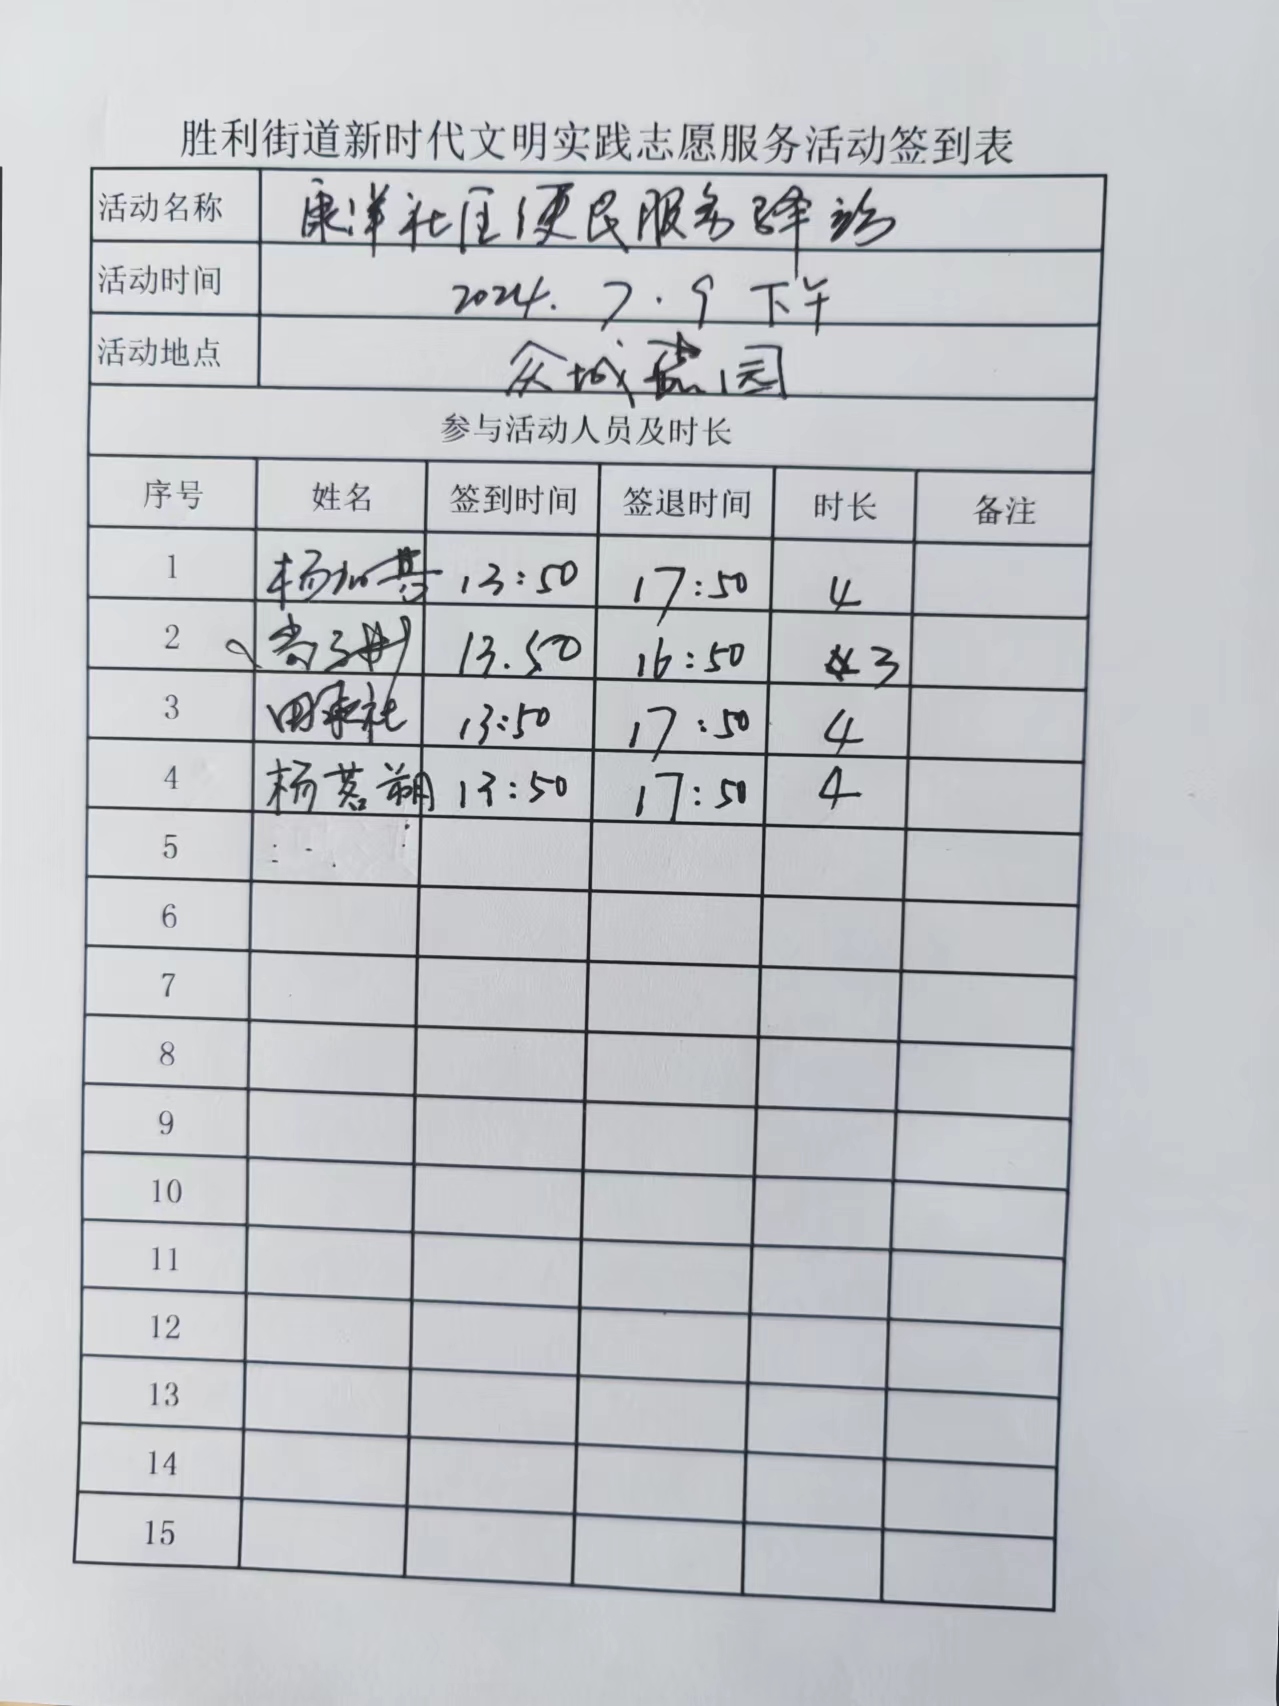 胜利街道新时代文明实践志愿服务活动签到表
活动名称 康洋社区便民服务驿站
活动时间 2024.7.9 下午
活动地点 众城嘉园
参与活动人员及时长
序号 姓名 签到时间 签退时间 时长 备注
1 杨 13:50 17:50 4
2 尚子 13.50 16:50 3
3 田 13:50 17:50 4
4 杨茗朔 13:50 17:50 4
5
6
7
8
9
10
11
12
13
14
15